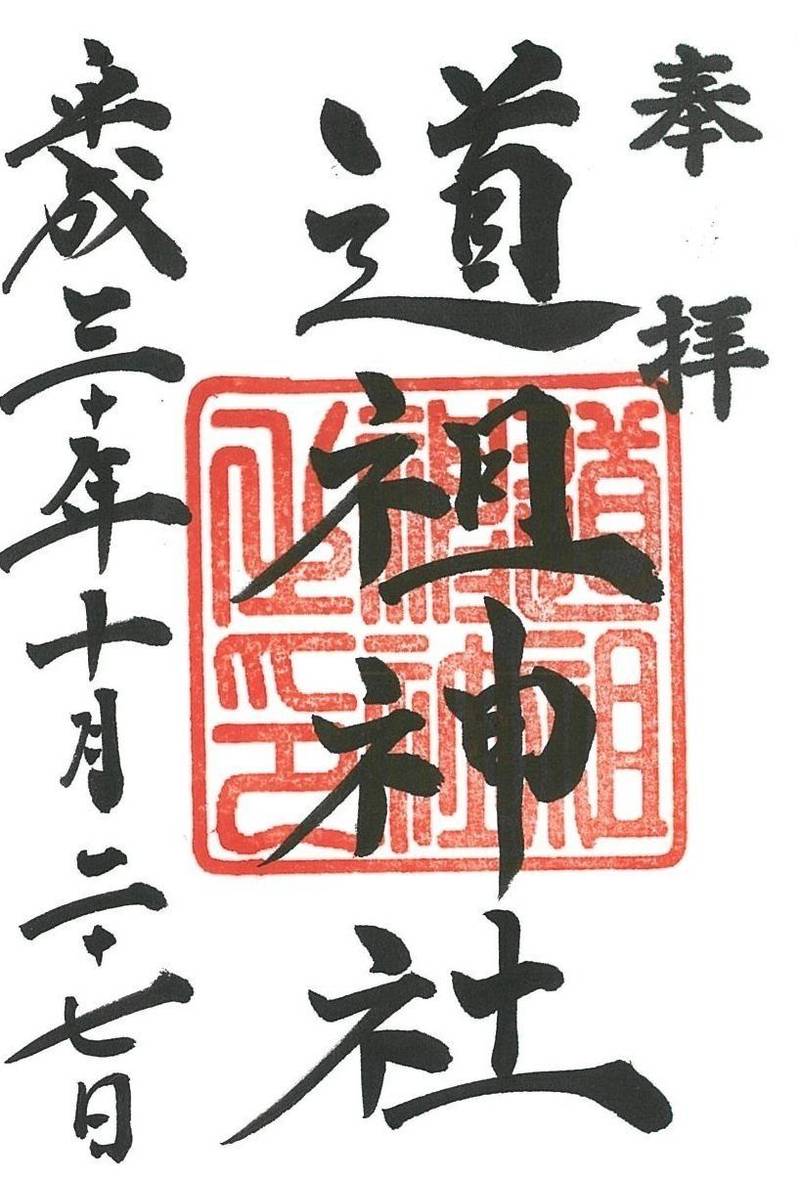 奉拝
道祖神社
道祖神社之印
平成三十年十月二十七日